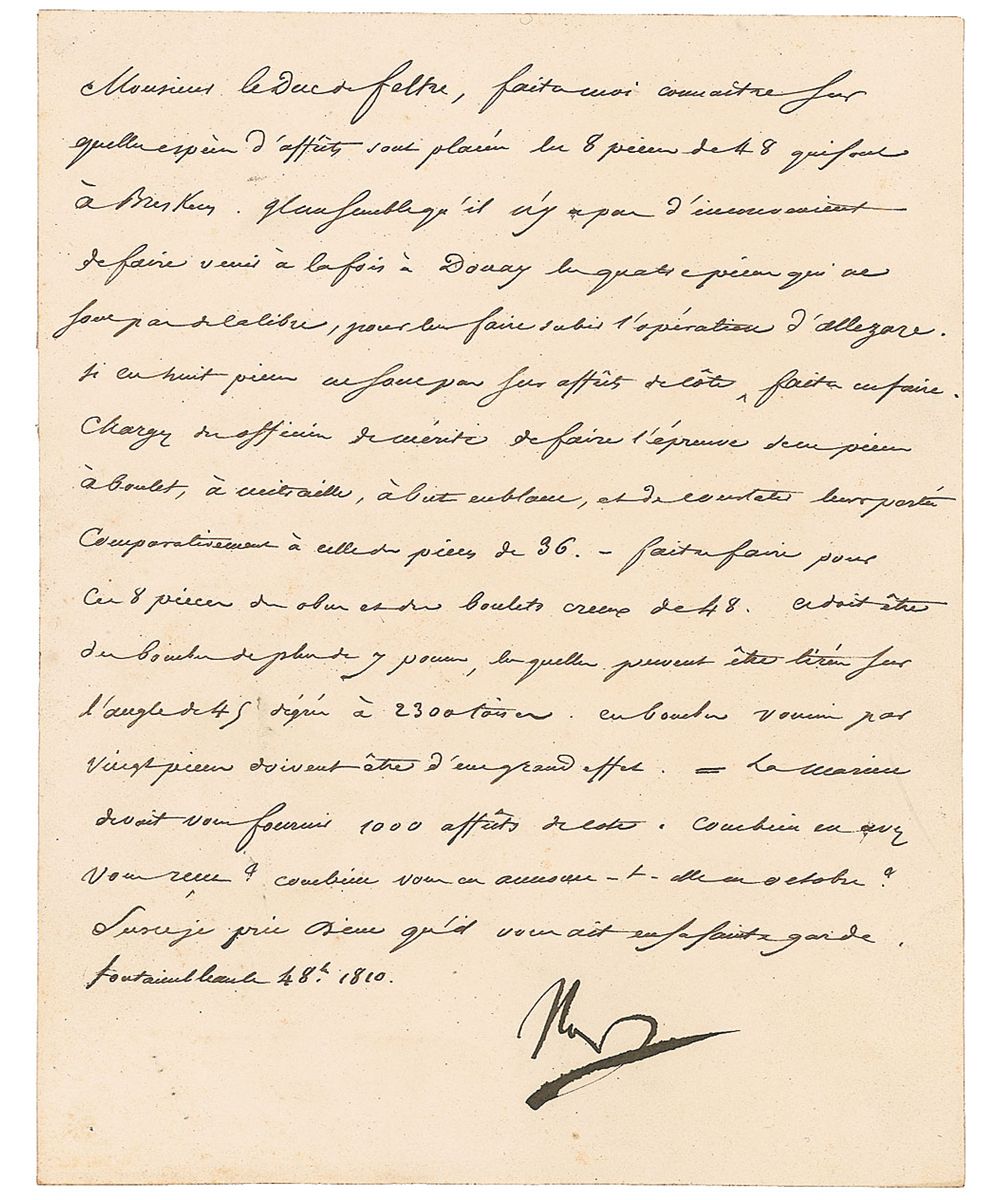 Monsieur le Duc de feltre, faites moi connaître sur
quelles espèces d'affûts sont placées les 8 pièces de 48 qui sont
à Breskens. Il me semble qu'il n'y a pas d'inconvenient
de faire venir à la fois à Douay les quatre pièces qui ne
sont pas de calibre, pour leur faire subir l'opération d'allezage.
si ces huit pièces ne sont pas sur affûts de côte, faites en faire.
Chargez des officiers de mérite de faire l'épreuve de ces pièces
à boulet, à mitraille, à but en blanc, et de constater leurs portées
Comparativement à celle des pièces de 36. - faites faire pour
Ces 8 pièces des obus et des boulets creux de 48. ce doit être
des bombes de plus de 7 pouces, lesquelles peuvent être tirées sur
l'angle de 45 dégrés à 2300 toises. ces bombes vomies par
vingt pièces doivent être d'un grand effet. = La marine
devait vous fournir 1000 affûts de côte. Combien en avez
vous reçu? combien vous en annonce-t-elle en octobre?
Sur ce, je prie Dieu qu'il vous ait en sa sainte garde.
fontainebleau le 4 8.bre 1810.